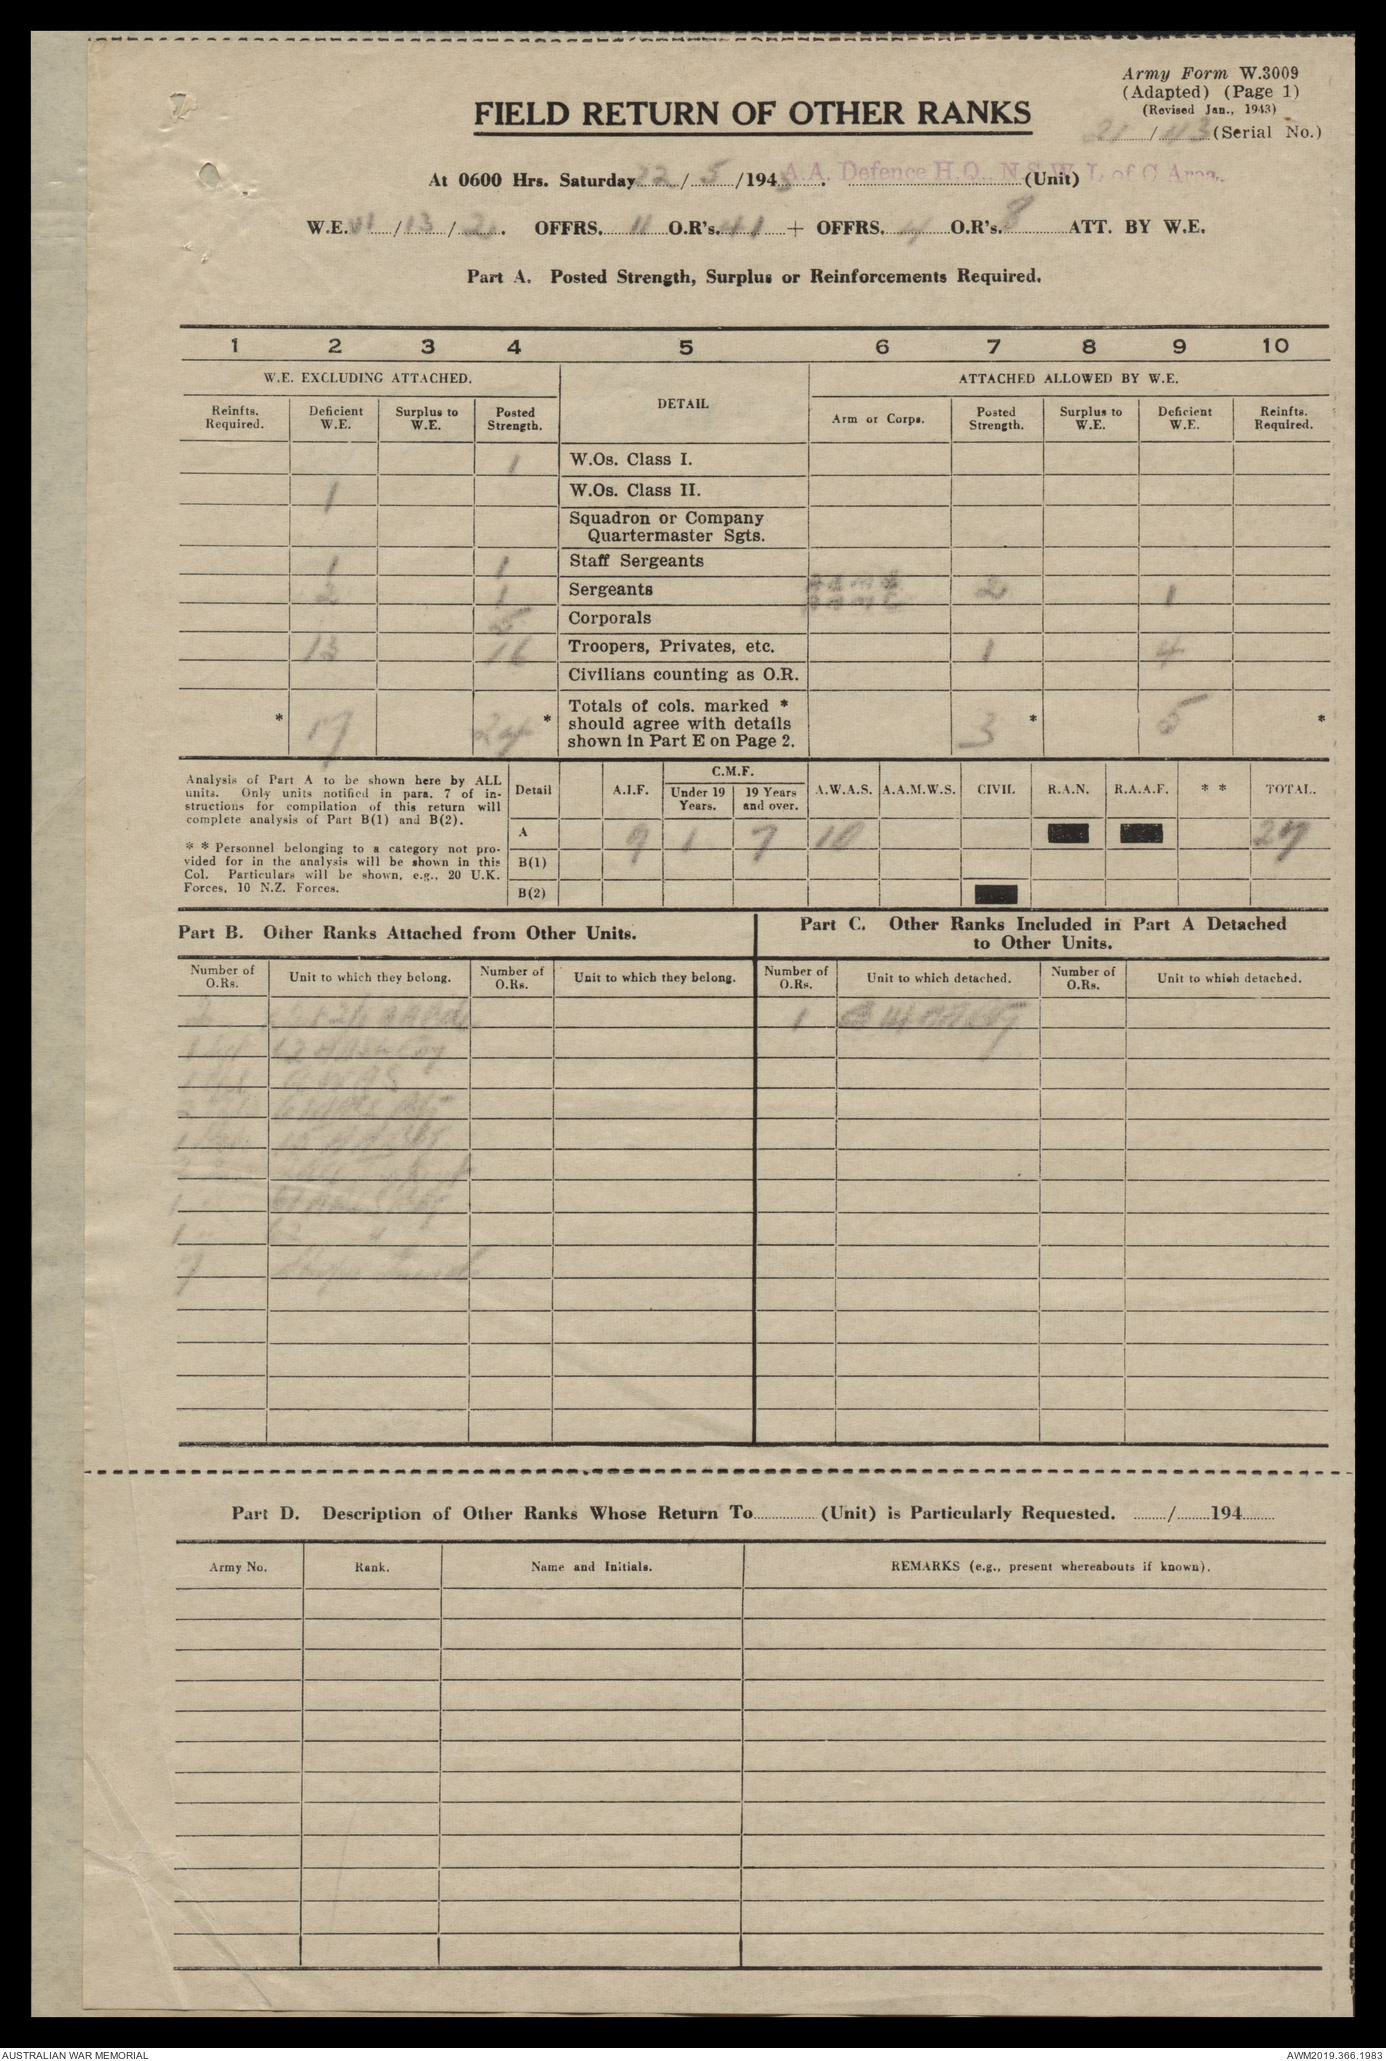 Army Form W.3009
(Adapted) (Page 1)
(Revised Jan., 1943)
21/43 (Serial No.)
FIELD RETURN OF OTHER RANKS
At 0600 Hrs. Saturday 22/5/1943. A.A. Defence H.Q., N.S.W. L. of C Area. (Unit)
W.E. VI/13/2. OFFRS. 11 O.R's. 41 + OFFRS. 4 O.R's. 8 ATT. BY W.E.
Part A. Posted Strength, Surplus or Reinforcements Required.
1 2 3 4 5 6 7 8 9 10
W.E. EXCLUDING ATTACHED. DETAIL ATTACHED ALLOWED BY W.E.
Reinfts. Required. Deficient W.E. Surplus to W.E. Posted Strength. Arm or Corps. Posted Strength. Surplus to W.E. Deficient W.E. Reinfts. Required.
1 W.Os. Class I.
1 W.Os. Class II.
Squadron or Company
Quartermaster Sgts.
1 1 Staff Sergeants
2 1 Sergeants 2 1
5 Corporals
13 16 Troopers, Privates, etc. 1 4
Civilians counting as O.R.
* 17 24 * Totals of cols. marked * should agree with details shown in Part E on Page 2. 3 * 5 *
Analysis of Part A to be shown here by ALL
units. Only units notified in para. 7 of in-
structions for compilation of this return will
complete analysis of Part B(1) and B(2).
* * Personnel belonging to a category not pro-
vided for in the analysis will be shown in this
Col. Particulars will be shown, e.g., 20 U.K.
Forces, 10 N.Z. Forces.
Detail A.I.F. C.M.F. Under 19 Years. 19 Years and over. A.W.A.S. A.A.M.W.S. CIVIL R.A.N. R.A.A.F. * * TOTAL.
A 9 1 7 10 27
B(1)
B(2)
Part B. Other Ranks Attached from Other Units.
Number of O.Rs. Unit to which they belong. Number of O.Rs. Unit to which they belong.
2
1
1 AWAS
2
1
2
1
1 "
7
Part C. Other Ranks Included in Part A Detached
to Other Units.
Number of O.Rs. Unit to which detached. Number of O.Rs. Unit to which detached.
1
Part D. Description of Other Ranks Whose Return To (Unit) is Particularly Requested. / 194
Army No. Rank. Name and Initials. REMARKS (e.g., present whereabouts if known).
AUSTRALIAN WAR MEMORIAL
AWM2019.366.1983